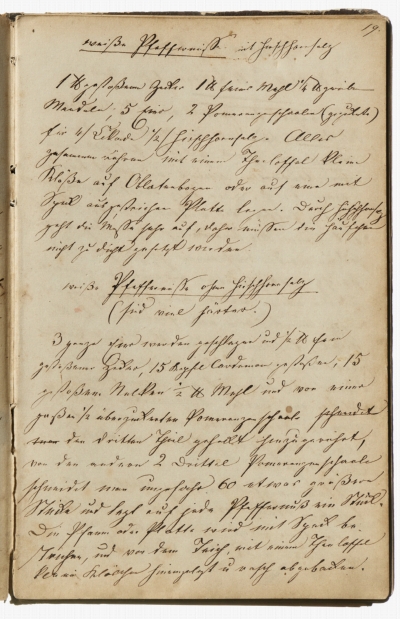 19.
weiße Pfeffernüsse mit Hirschhornsalz
1 ℔ gestoßenen Zucker 1 ℔ feines Mehl ¼ ℔ geriebene
Mandeln, 5 Eier, 2 Pomeranzenschaalen
für Hirschhornsalz. Alles
zusammen rühren mit einem Theelöffel kleine
Klöße auf Oblatenbogen oder auf eine mit
Speck ausgestrichene Platte legen. Durch Hirschhornsalz
geht die Masse sehr auf, daher müssen die Häufchen
nicht zu dicht gesetzt werden
weiße Pfeffernüsse ohne Hirschhornsalz
(sind viel härter.)
3 ganze Eier werden geschlagen und ½ ℔ fein
gestoßenen Zucker, 15 Cardamom gestoßen, 15
gestoßene Nelken ½ ℔ Mehl und von einer
großen überzuckerten Pomeranzenschaale schneidet
man den dritten Theil hinzugerührt,
von den anderen 2 Drittel Pomeranzenschaale
schneidet man ungefähr 60 etwas größere
Stücke und legt auf jede Pfeffernuß ein Stück.
Die Pfanne oder Platte wird mit Speck be-
strichen, und von dem Teich, mit einem Theelöffel
kleine Klöschen hineingelegt u rasch abgebacken.